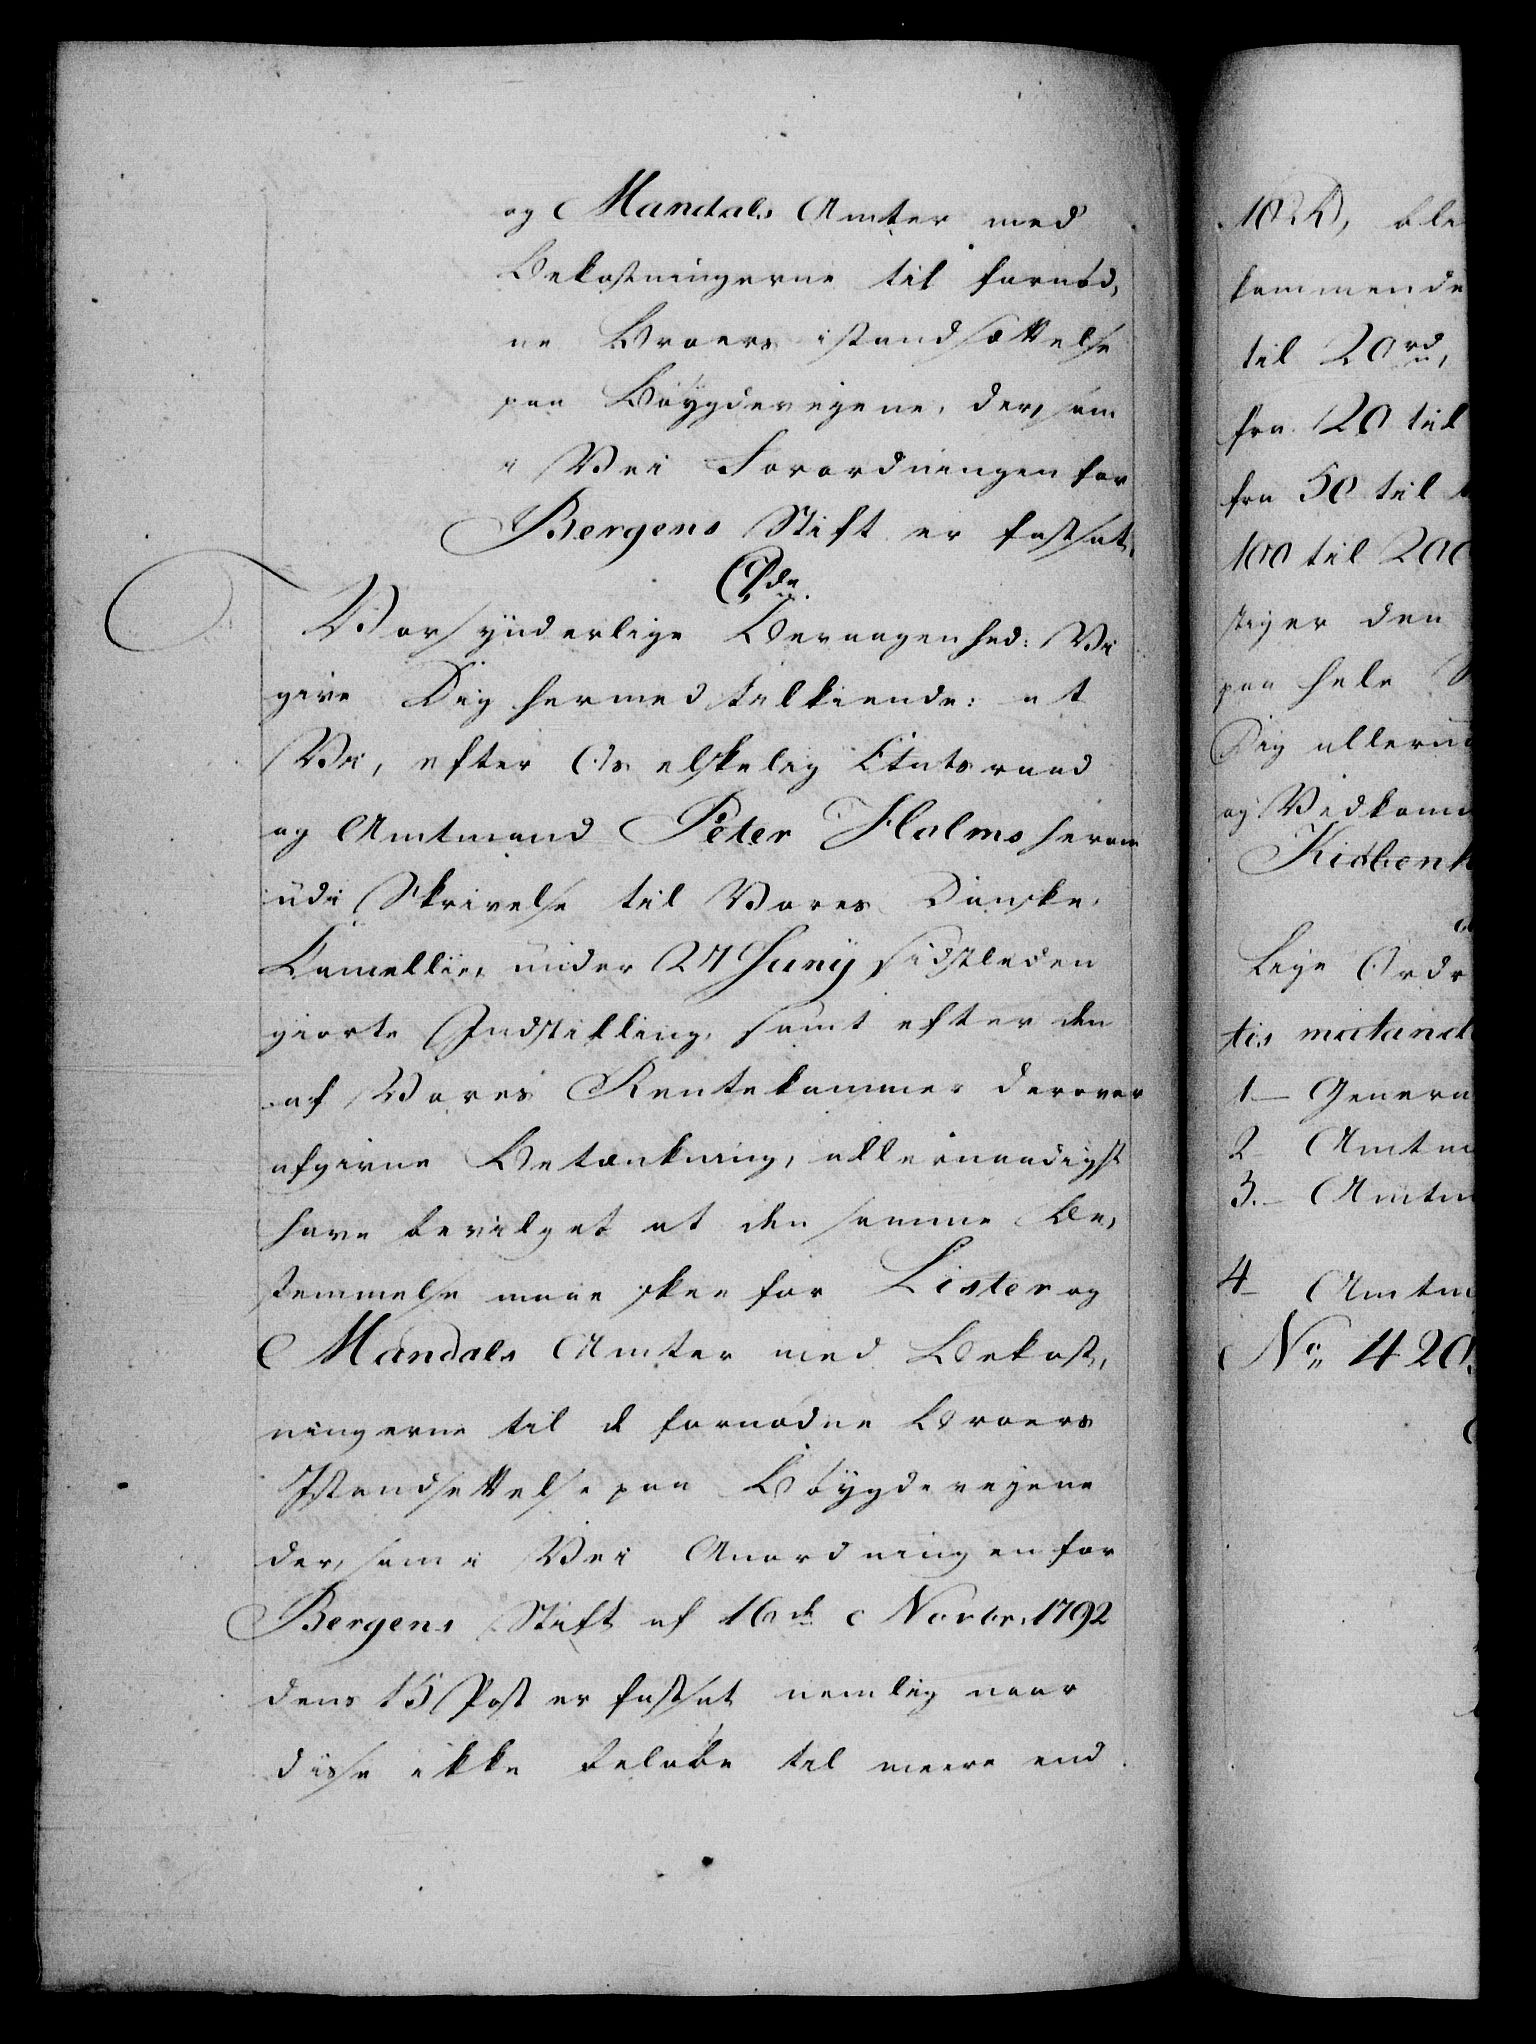 og Mandals Amter med
Bekostningerne til fornød,
ne Broers istandsættelse
paa Bøygdeveyene, der, som
i Vei Forordningen for
Bergens Stift er fastsat.
Vor synderlige Bevaagenhed: Vi
give Dig hermed tilkiende: at
Vi, efter Os elskelig Etatsraad
og Amtmand Peter Holms herom
udi Skrivelse til Vores Danske
Cancellie, under 27 Juny sidstleden
giorte Indstilling, samt efter den
af Vores Rentekammer derover
afgivne Betænkning, allernaadigst
have bevilget at den samme Be,
stemmelse maae skee for Lister og
Mandals Amter med Bekost,
ningerne til d fornødne Broers
Istandsettelse paa Bøygdeveyene
der, som i Vei Anordningen for
Bergens Stift af 16de Novbr. 1792
dens 15 Post er fastsat nemlig naar
disse ikke beløbe til meere end
ble
kommende
til 20 rd,
fra 20 til
fra 50 til
100 til 200
stiger den
paa hele
Dig allerun
og Vedkom
Kiøbenh
Lige Ordr
tis mutand
1 – Genera
2 – Amtm
3. – Amtm
4 – Amtm
No. 420.